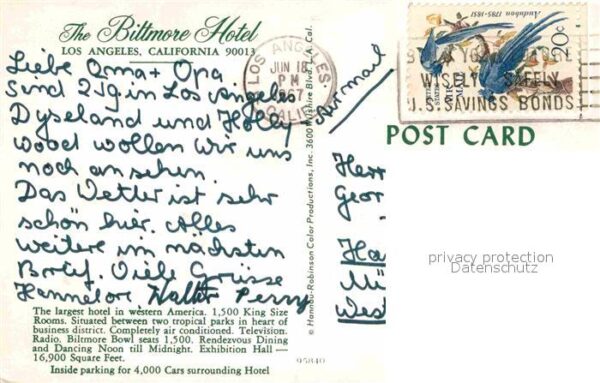 The Biltmore Hotel
LOS ANGELES, CALIFORNIA 90013
Liebe Oma + Opa
Sind 2 Tg. in Los Angeles
Dyseland und Holly-
wood wollen wir uns
noch ansehen.
Das Wetter ist sehr
schön hier. Alles
weitere im nächsten
Brief. Viele Grüsse
Hannelore Walter Perry
The largest hotel in western America. 1,500 King Size
Rooms. Situated between two tropical parks in heart of
business district. Completely air conditioned. Television.
Radio. Biltmore Bowl seats 1,500. Rendezvous Dining
and Dancing Noon till Midnight. Exhibition Hall —
16,900 Square Feet.
Inside parking for 4,000 Cars surrounding Hotel
© Hannau-Robinson Color Productions, Inc. 3600 Wilshire Blvd. L.A. Cal.
95840
Airmail
LOS ANGELES
JUN 18
PM
1967
CALIF
Audubon 1785-1851
20c
WISELY SAFELY
U.S. SAVINGS BONDS
POST CARD
Herr
Geor
Ha
Mü
Wes
privacy protection
Datenschutz